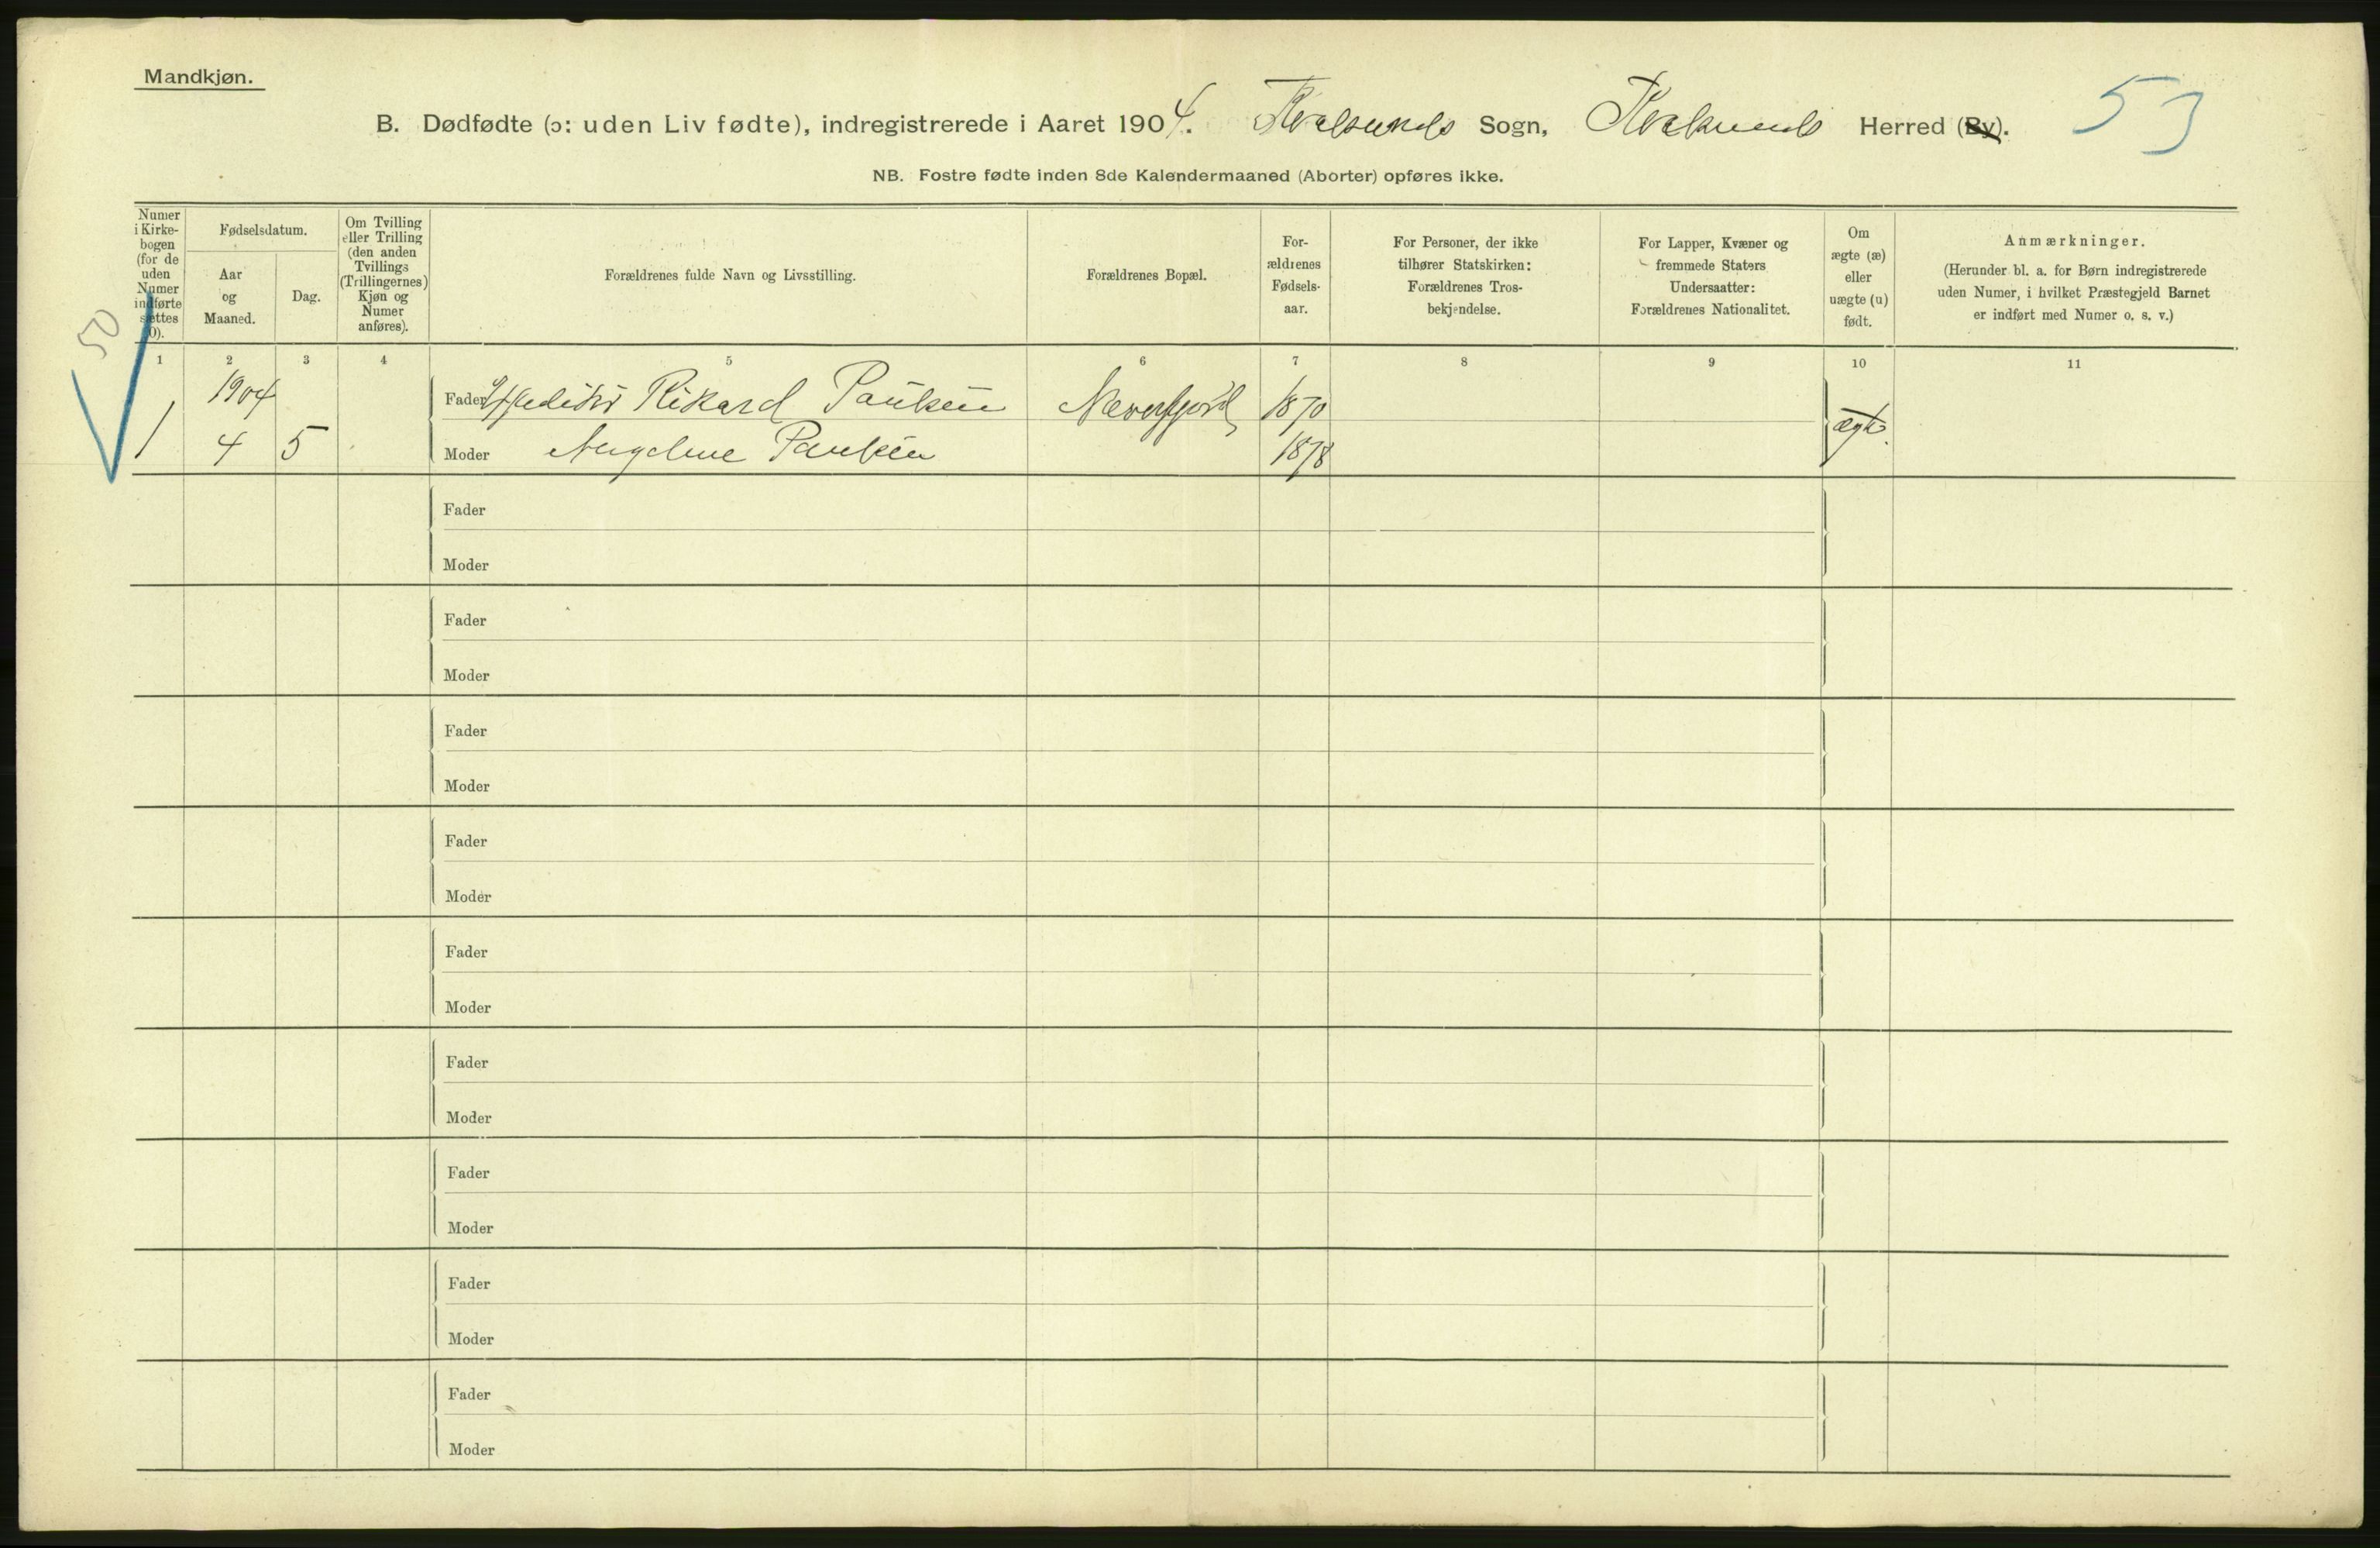 Mandkjøn.
B. Dødfødte (ɔ: uden Liv fødte), indregistrerede i Aaret 1904. Kvalsunds Sogn, Kvalsunds Herred (By). 53
NB. Fostre fødte inden 8de Kalendermaaned (Aborter) opføres ikke.
Numer i Kirke-bogen (for de uden Numer indførte sættes 0).
Fødselsdatum.
Aar og Maaned.
Dag.
Om Tvilling eller Trilling (den anden Tvillings (Trillingernes) Kjøn og Numer anføres).
Forældrenes fulde Navn og Livsstilling.
Forældrenes Bopæl.
For-ældrenes Fødsels-aar.
For Personer, der ikke tilhører Statskirken: Forældrenes Tros-bekjendelse.
For Lapper, Kvæner og fremmede Staters Undersaatter: Forældrenes Nationalitet.
Om ægte (æ) eller uægte (u) født.
Anmærkninger.
(Herunder bl. a. for Børn indregistrerede uden Numer, i hvilket Præstegjeld Barnet er indført med Numer o. s. v.)
50
1 2 3 4 5 6 7 8 9 10 11
1904 Fader Rikard Paulsen Neverfjord 1870 ægte
1 4 5 Moder Angeline Paulsen 1878
Fader
Moder
Fader
Moder
Fader
Moder
Fader
Moder
Fader
Moder
Fader
Moder
Fader
Moder
Fader
Moder
Fader
Moder